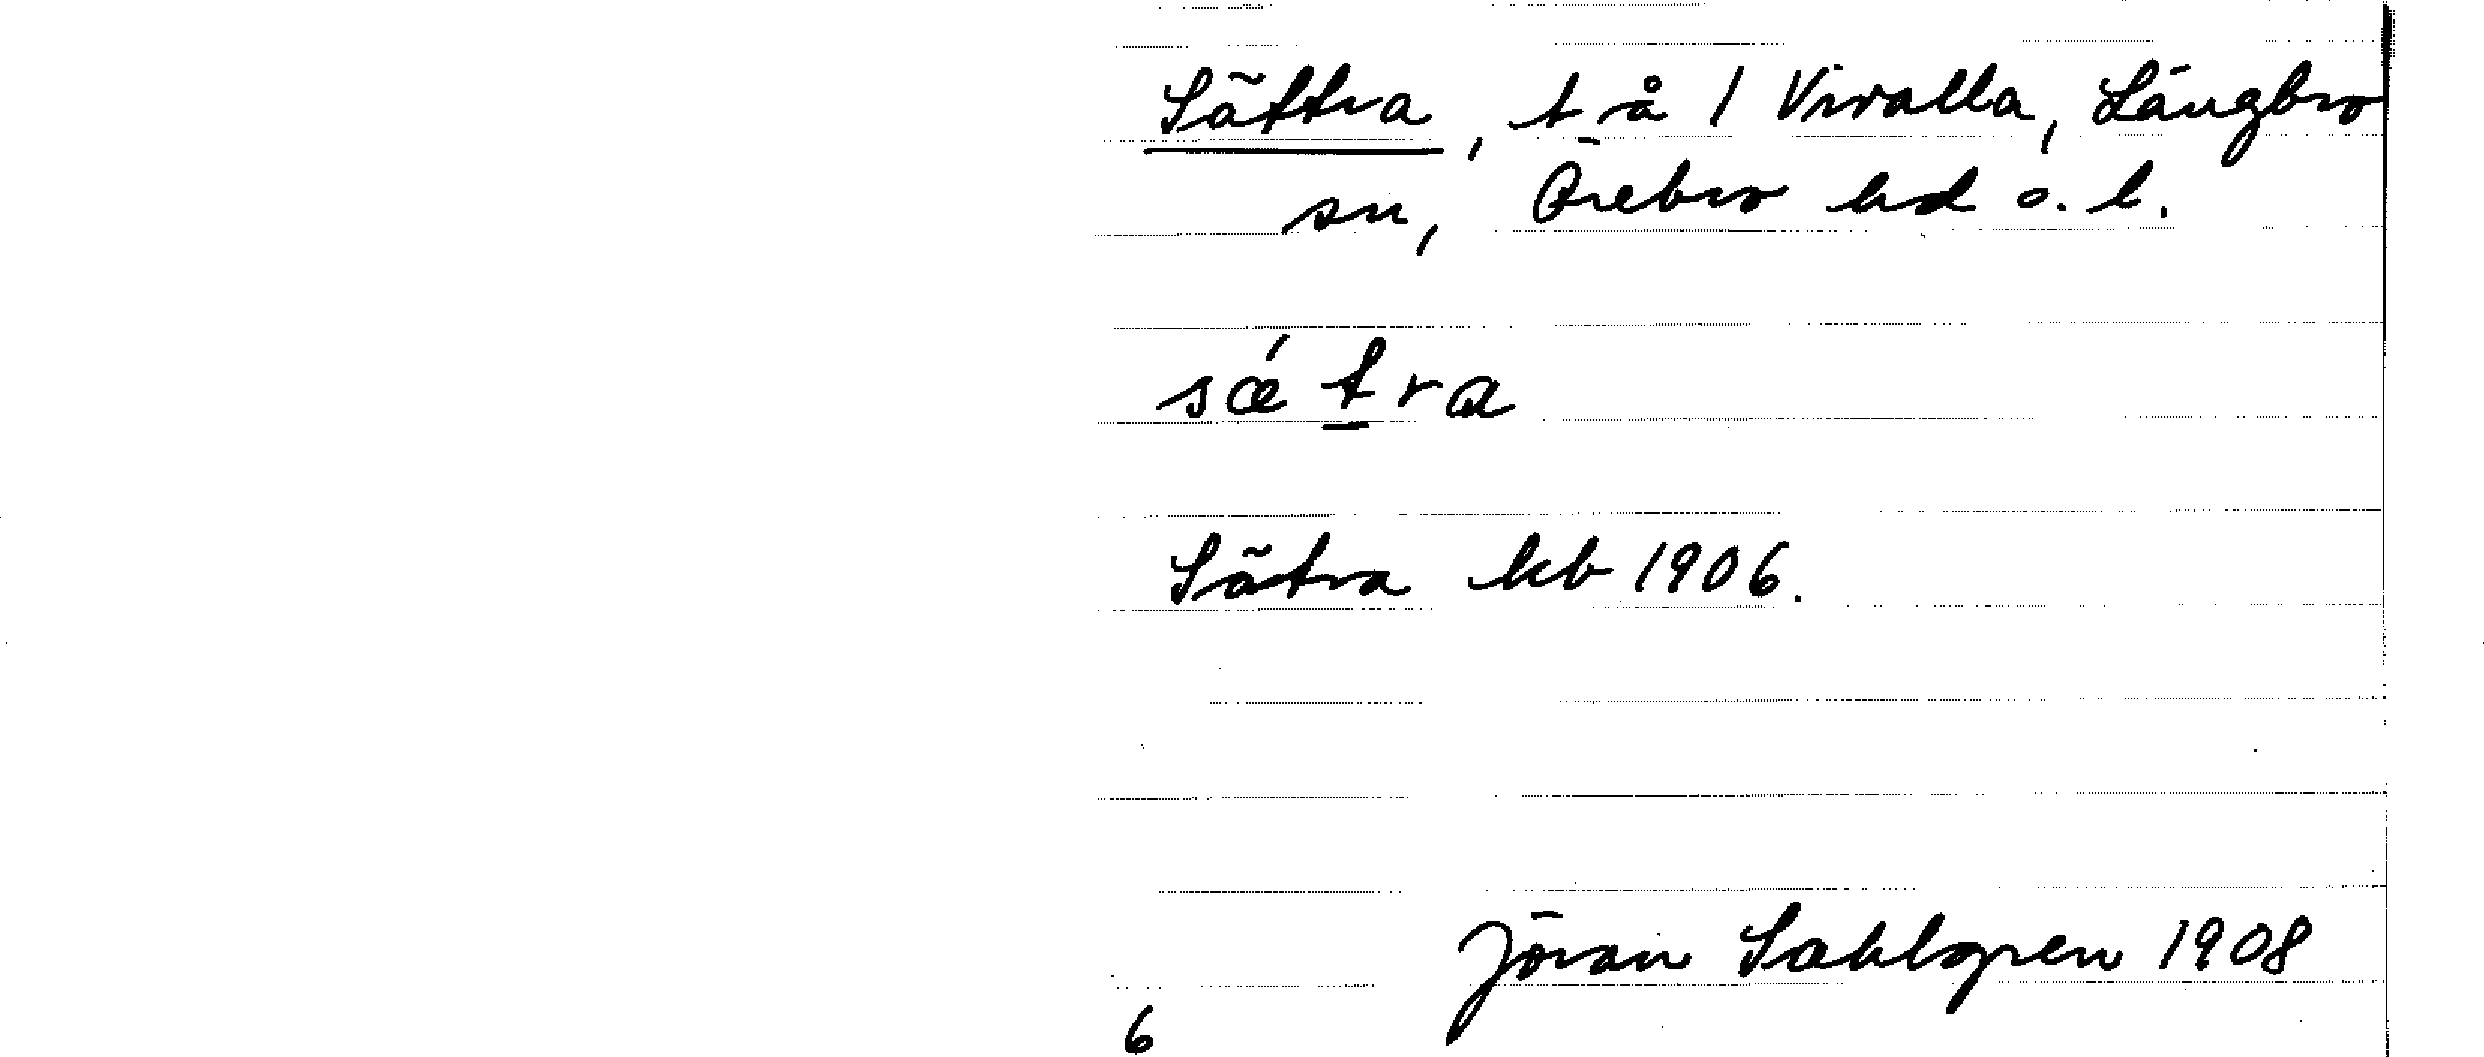 Sättra, t å 1 Vivalla, Längbro
sn, Örebro hd o. l.
sǽtra
Sätra kb 1906.
Jöran Sahlgren 1908
6